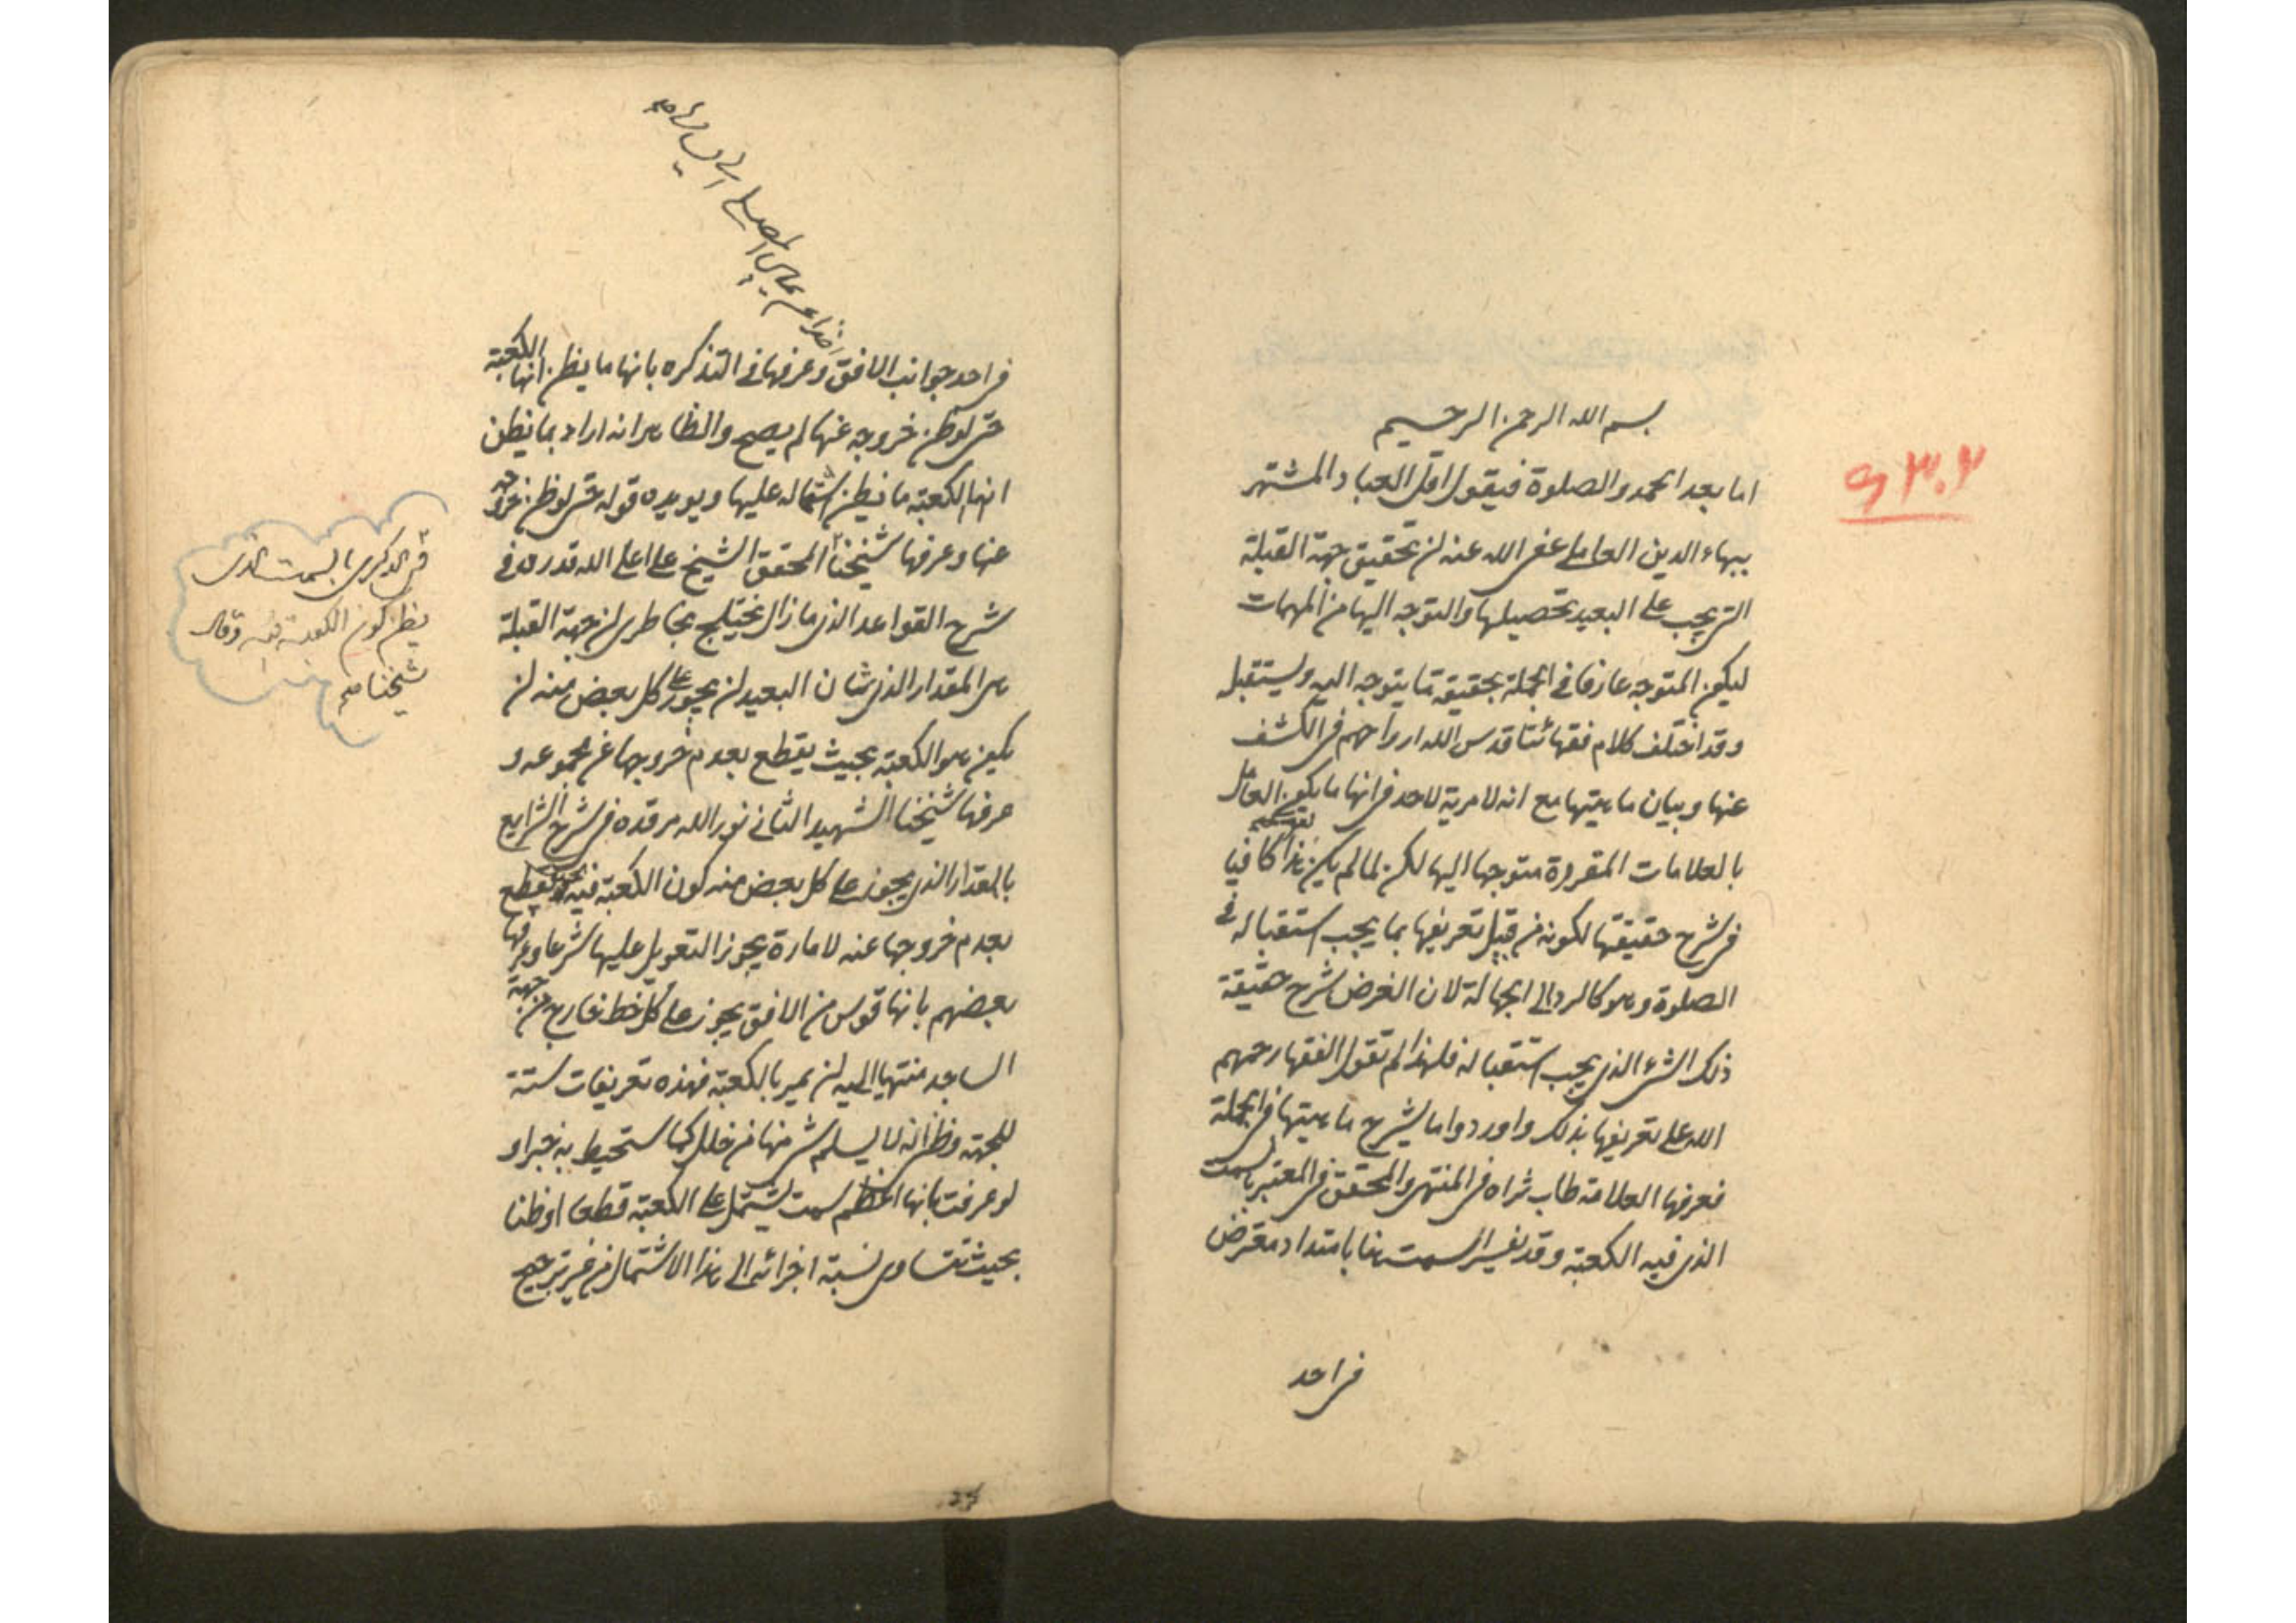 بسم الله الرحمن الرحيم
اما بعد الحمد والصلوة فيقول اقل العباد المشتهر
ببهاء الدين العاملي عفى الله عنه لن تحقيق جهة القبلة
التي يجب على البعيد تحصيلها والتوجه اليها من المهمات
ليكون المتوجه عارفا في الجملة بحقيقة ما يتوجه اليه ويستقبل
وقد اختلف كلام فقهائنا قدس الله ارواحهم في الكشف
عنها وبيان ماهيتها مع انه لا مرية لاحد في انها ما يكون العامل
بالعلامات المقررة متوجها اليها لكن لما لم يكن هذا كافيا
في شرح حقيقتها لكونه من قبيل تعريفها بما يجب استقباله في
الصلوة وهو كالرد الى الجهالة لان الغرض شرح حقيقة
ذلك الشيء الذي يجب استقباله فلهذا لم الفقهاء رحمهم
الله على تعريفها بذلك واوردوا ما يشرح ماهيتها في الجملة
فعرفها العلامة طاب ثراه في المنتهى والمحقق في المعتبر بالسمت
الذي فيه الكعبة وقد يفسر السمت هنا بامتداد معترض
في احد
٩٣٠٢
في احد جوانب الافق وعرفها في التذكره بانها ما يظن انها الكعبة
حتى لو ظن خروجه عنها لم يصح والظاهر انه اراد بما يظن
انها الكعبة ما يظن اشتماله عليها ويويده قوله حتى لو ظن خروجه
عنها وعرفها شيخنا المحقق الشيخ على اعلى الله قدره في
شرح القواعد الذي ما زال يختلج بخاطرى لن جهة القبلة
هى المقدار الذي شان البعيد لن يجوز على كل بعض منه لن
يكون هو الكعبة بحيث يقطع بعدم خروجها عن مجموعه و
عرفها شيخنا الشهيد الثاني نور الله مرقده في شرح الشرايع
بالمقدار الذي يجوز على كل بعض منه كون الكعبة فيه ويقطع
بعدم خروجها عنه لامارة يجوز التعويل عليها شرعا وعرفها
بعضهم بانها قوس من الافق يجوز على كل خط خارج من جبهة
الساجد منتهيا اليه لن يمر بالكعبة فهذه تعريفات ستة
للجهة وظنى انه لا يسلم شئ منها من خلل كما ستحيط به خبرا و
لو عرفت بانها اعظم سمت يشتمل على الكعبة قطعا او ظنا
بحيث تتساوى نسبة اجزائه الى هذا الاشتمال من غير ترجيح
في الذكرى بالسمت الذي
يظن كون الكعبة فيه وقال
شيخنا